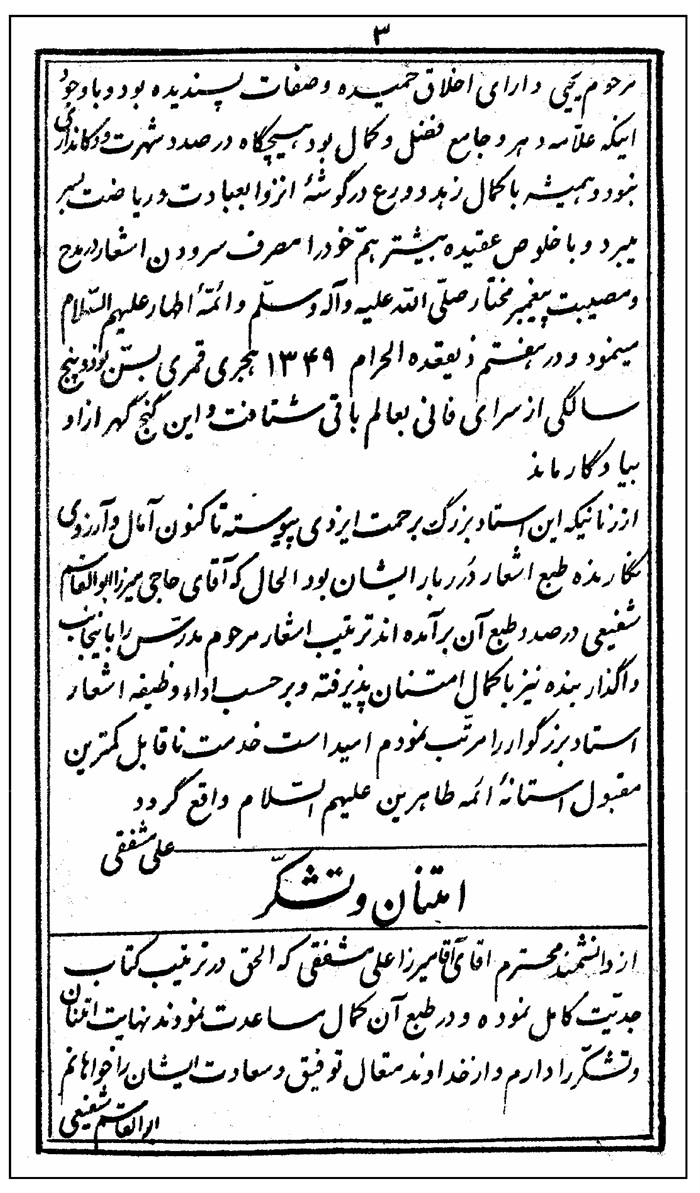 ۳
مرحوم یحیی دارای اخلاق حمیده و صفات پسندیده بود و با وجود
اینکه علامه دهر و جامع فضل و کمال بود هیچگاه درصدد شهرت و دکانداری
نبود و همیشه با کمال زهد و ورع در گوشهٔ انزوا بعبادت و ریاضت بسر
میبرد و با خلوص عقیده بیشتر همّ خود را مصرف سرودن اشعار در مدح
و مصیبت پیغمبر مختار صلّی الله علیه و آله و سلّم و ائمّهٔ اطهار علیهم السّلام
مینمود و در هفتم ذیقعده الحرام ۱۳۴۹ هجری قمری بسنّ نود و پنج
سالگی از سرای فانی بعالم باقی شتافت و این گنج گهر از او
بیادگار ماند
از زمانیکه این استاد بزرگ برحمت ایزدی پیوسته تاکنون آمال و آرزوی
نگارنده طبع اشعار دُرربار ایشان بود الحال که آقای حاجی میرزا ابوالقاسم
شفیعی درصدد طبع آن برآمده اند ترتیب اشعار مرحوم مدرّس را باینجانب
واگذار بنده نیز با کمال امتنان پذیرفته و برحسب اداء وظیفه اشعار
استاد بزرگوار را مرتّب نمودم امید است خدمت ناقابل کمترین
مقبول آستانهٔ ائمه طاهرین علیهم السّلام واقع گردد
علی مشفقی
امتنان و تشکّر
از دانشمند محترم آقای آقا میرزا علی مشفقی که الحق در ترتیب کتاب
جدیّت کامل نموده و در طبع آن کمال مساعدت نمودند نهایت امتنان
و تشکّر را دارم و از خداوند متعال توفیق و سعادت ایشان را خواهانم
ابوالقاسم شفیعی